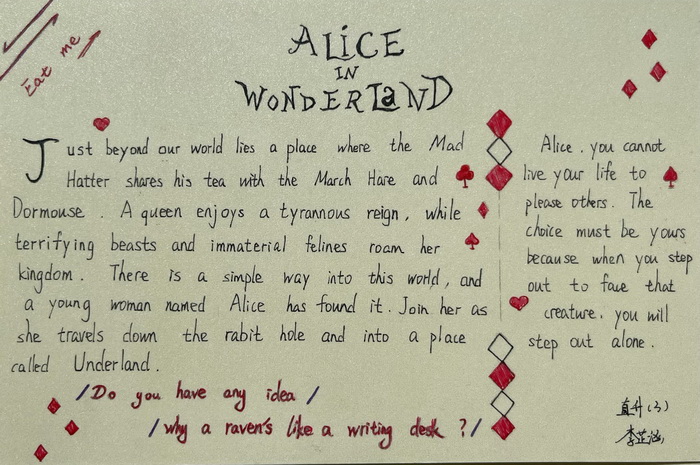 Eat me
ALiCE
IN
WONDERLaND
Just beyond our world lies a place where the Mad
Hatter shares his tea with the March Hare and
Dormouse. A queen enjoys a tyrannous reign, while
terrifying beasts and immaterial felines roam her
kingdom. There is a simple way into this world, and
a young woman named Alice has found it. Join her as
she travels down the rabit hole and into a place
called Underland.
/Do you have any idea/
/why a raven's like a writing desk?/
Alice. you cannot
live your life to
please others. The
choice must be yours
because when you step
out to face that
creature. you will
step out alone.
直升(3)
李芷涵